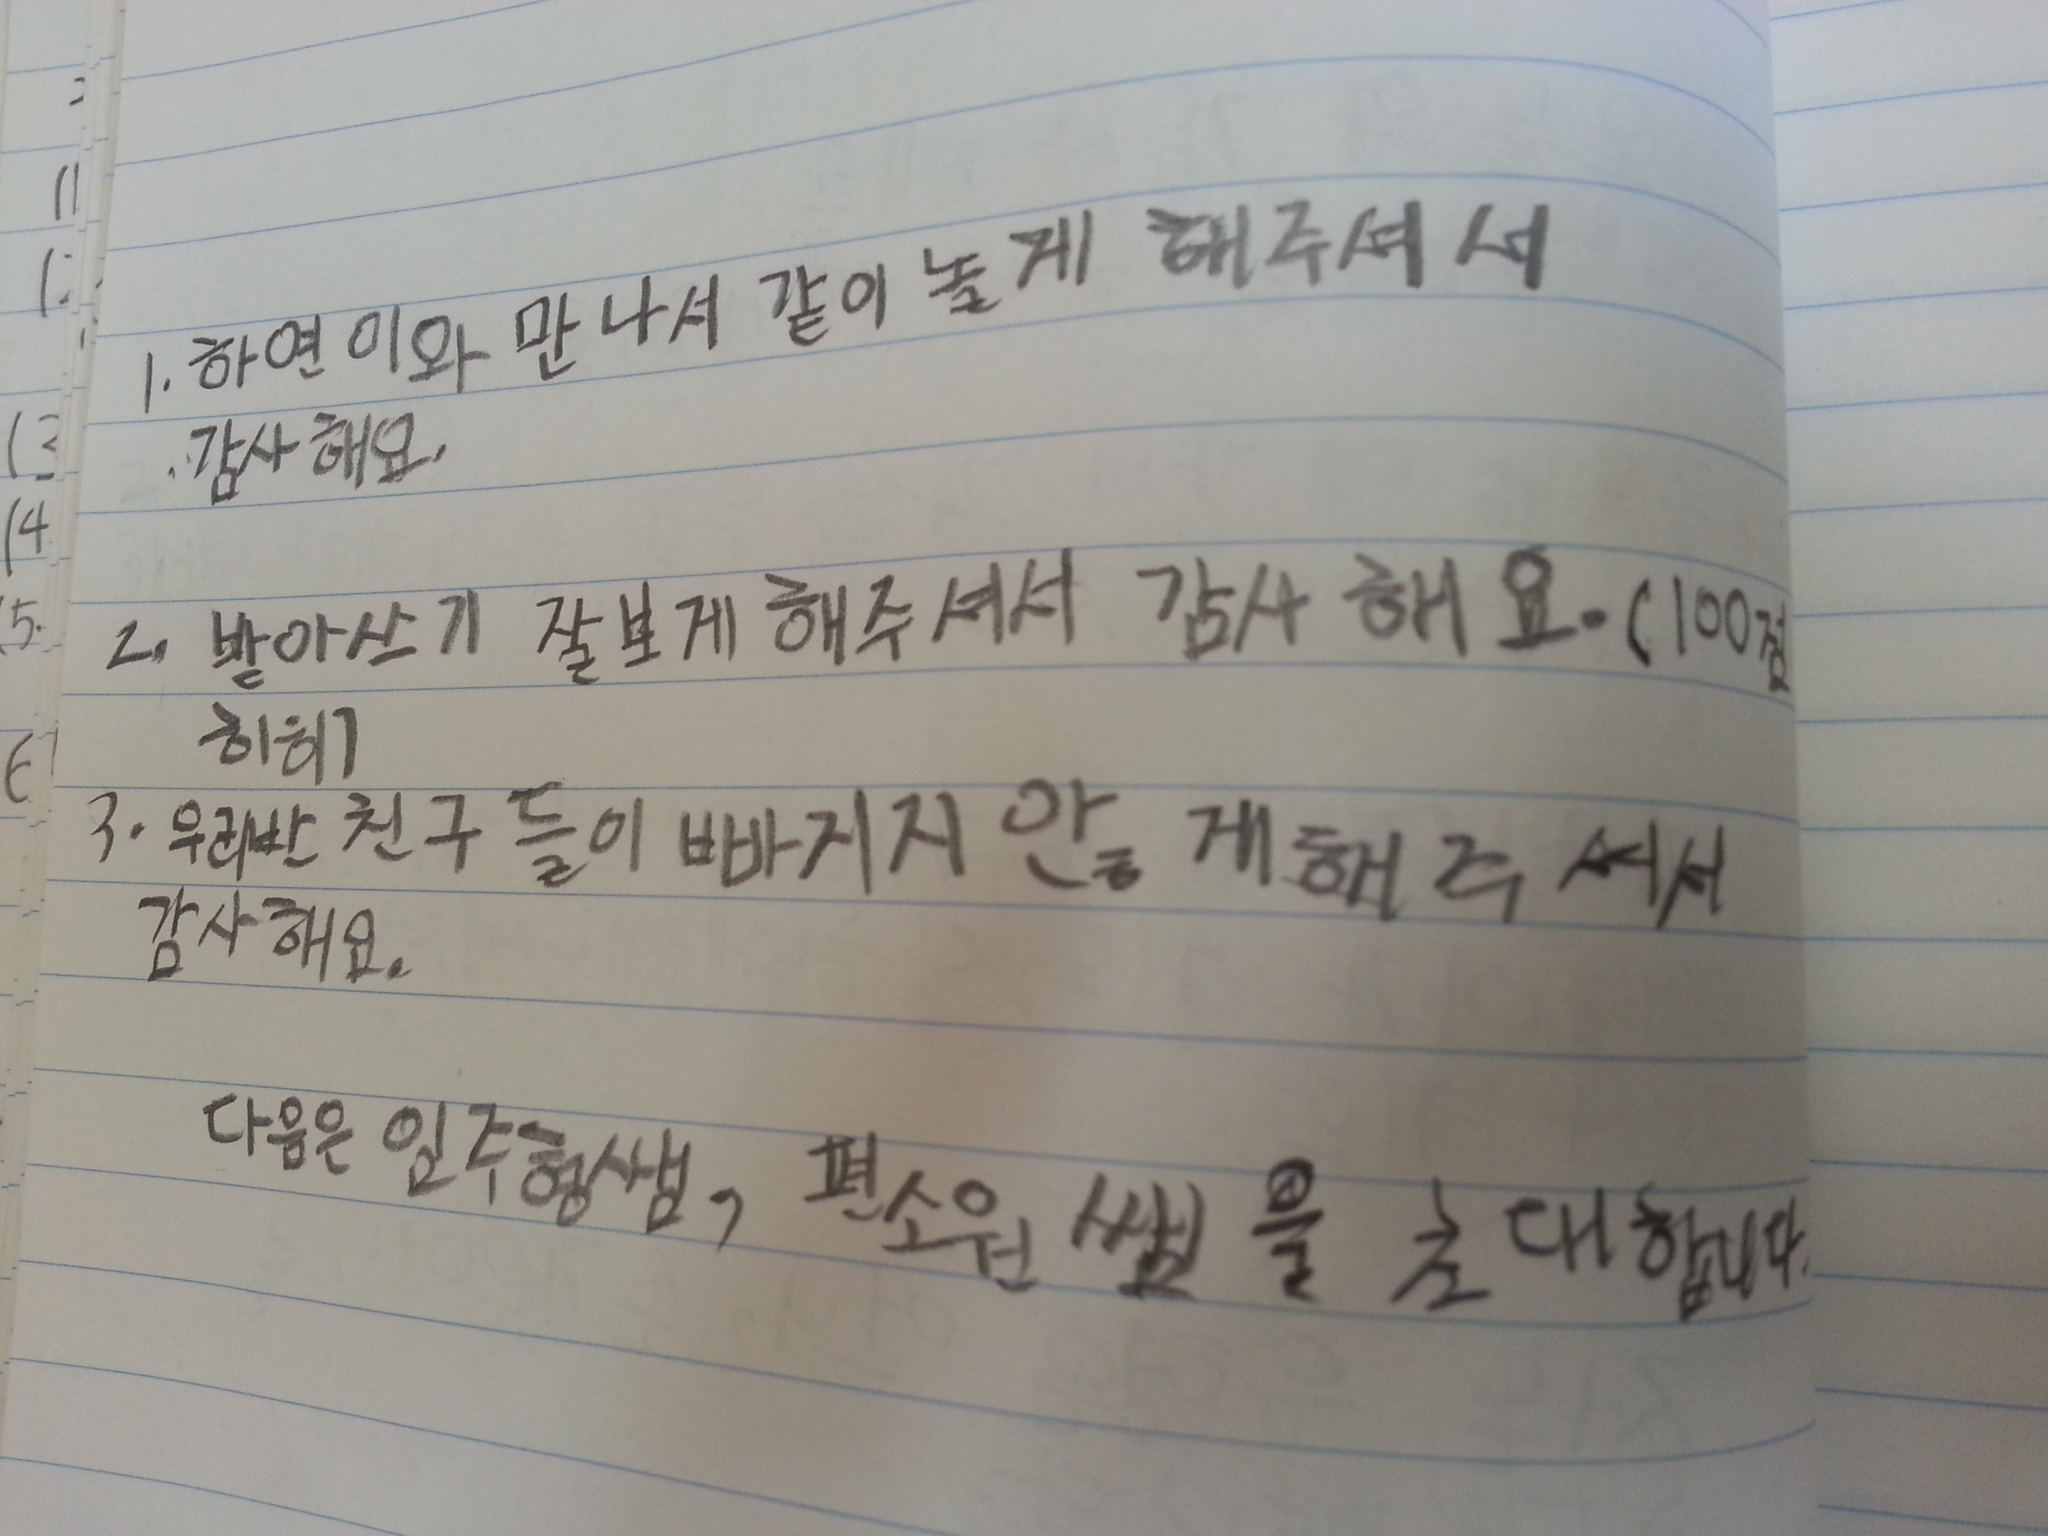 1. 하연이와 만나서 같이 놀게 해주셔서
감사해요.
2. 받아쓰기 잘보게해주셔서 감사해요. (100점
히히)
3. 우리반 친구들이 빠지지 않게해주셔서
감사해요.
다음은 임주형쌤, 편소원쌤을 초대합니다.